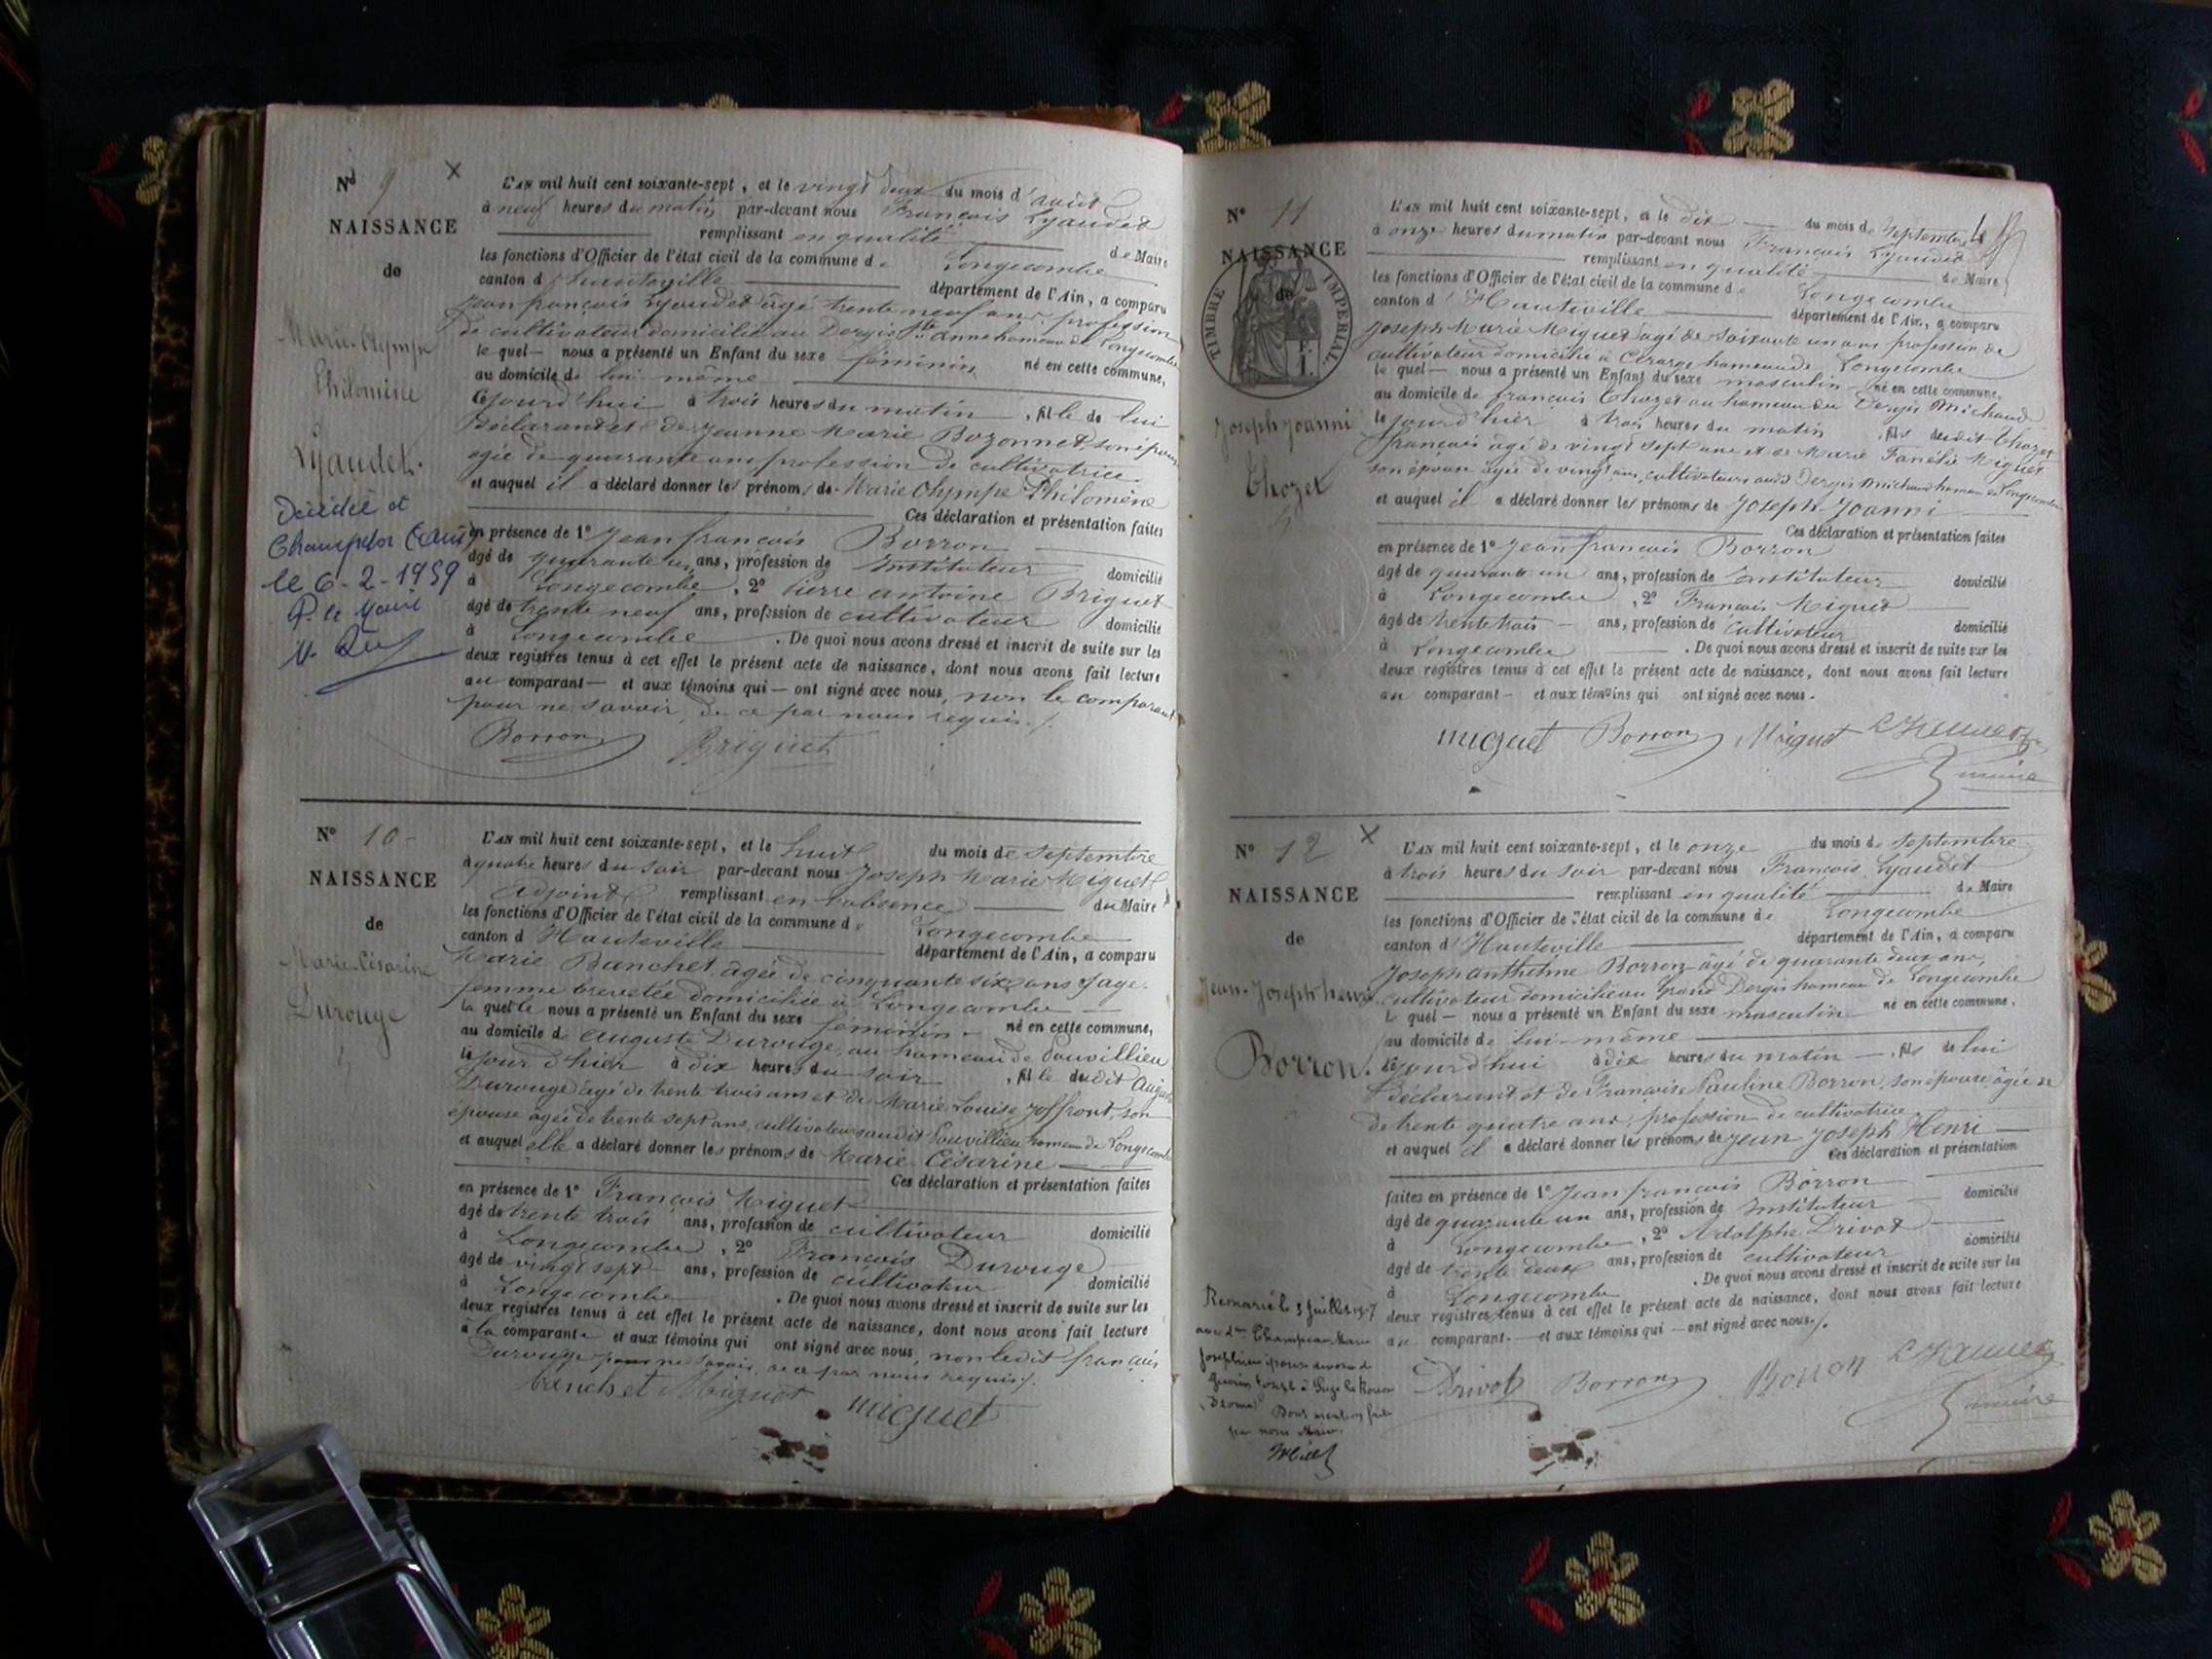 Nº 9
NAISSANCE
de
Marie-Olympe
Philomène
Lyaudet.
Décédée à
le 6-2-1959
P. le Maire
L'AN mil huit cent soixante-sept, et le vingt deux du mois d'août
à neuf heures du matin, par-devant nous François Lyaudet
remplissant en qualité de Maire
les fonctions d'Officier de l'état civil de la commune de Longecombe
canton d'hauteville département de l'Ain, a comparu
Jean françois Lyaudet âgé trente neuf ans, profession
de cultivateur domicilié au Dergis Ste anne hameau de Longecombe
le quel — nous a présenté un Enfant du sexe féminin, né en cette commune,
au domicile de lui-même
cejourd'hui à trois heures du matin, fille de lui
Déclarant et de Jeanne Marie Bozonnet, son épouse
agée de quarante ans, profession de cultivatrice
et auquel il a déclaré donner les prénoms de Marie Olympe Philomène
Ces déclaration et présentation faites
en présence de 1º Jean françois Borron
âgé de quarante un ans, profession de Instituteur domicilié
à Longecombe, 2º Pierre antoine Briguet
âgé de trente neuf ans, profession de cultivateur domicilié
à Longecombe. De quoi nous avons dressé et inscrit de suite sur les
deux registres tenus à cet effet le présent acte de naissance, dont nous avons fait lecture
au comparant — et aux témoins qui — ont signé avec nous, non le comparant
pour ne savoir, de ce par nous requis./.
Borron Briguet
Nº 10
NAISSANCE
de
Marie-Césarine
Durouge
L'AN mil huit cent soixante-sept, et le huit du mois de septembre
à quatre heures du soir par-devant nous Joseph Marie Miguet
adjoint remplissant en l'absence du Maire
les fonctions d'Officier de l'état civil de la commune de Longecombe
canton d'Hauteville département de l'Ain, a comparu
Marie Banchet âgée de cinquante six ans sage-
femme brevetée domiciliée à Longecombe
la quelle nous a présenté un Enfant du sexe féminin - né en cette commune,
au domicile de auguste Durouge, au hameau de Pouvillieu
le jour d'hier à dix heures du soir, fille dudit auguste
Durouge âgé de trente trois ans et de Marie Louise Joffront, son
épouse âgée de trente sept ans, cultivateurs audit Pouvillieu hameau de Longecombe
et auquel elle a déclaré donner les prénoms de Marie-Césarine
Ces déclaration et présentation faites
en présence de 1º François Miguet
âgé de trente trois ans, profession de cultivateur domicilié
à Longecombe, 2º François Durouge
âgé de vingt sept ans, profession de cultivateur domicilié
à Longecombe. De quoi nous avons dressé et inscrit de suite sur les
deux registres tenus à cet effet le présent acte de naissance, dont nous avons fait lecture
à la comparante et aux témoins qui ont signé avec nous, non ledit françois
Durouge pour ne savoir, de ce par nous requis./.
banchet Miguet miguet
Nº 11
NAISSANCE
de
TIMBRE IMPERIAL
1 F.
Joseph Joanni
Thozet
L'AN mil huit cent soixante-sept, et le dix du mois de septembre
à onze heures du matin par-devant nous François Lyaudet
remplissant en qualité de Maire
les fonctions d'Officier de l'état civil de la commune de Longecombe
canton d'Hauteville département de l'Ain, a comparu
Joseph Marie Miguet âgé de soixante un ans profession de
cultivateur domicilié à hameau de Longecombe
le quel — nous a présenté un Enfant du sexe masculin - né en cette commune,
au domicile de françois Thozet au hameau du Dergis Michaud
le jour d'hier à trois heures du matin, fils dudit Thozet
françois âgé de vingt sept ans et de Marie Miguet
son épouse âgée de vingt ans, cultivateurs audit Dergis Michaud hameau de Longecombe
et auquel il a déclaré donner les prénoms de Joseph-Joanni
Ces déclaration et présentation faites
en présence de 1º Jean françois Borron
âgé de quarante un ans, profession de Instituteur domicilié
à Longecombe, 2º François Miguet
âgé de trente trois - ans, profession de cultivateur domicilié
à Longecombe. De quoi nous avons dressé et inscrit de suite sur les
deux registres tenus à cet effet le présent acte de naissance, dont nous avons fait lecture
au comparant - et aux témoins qui ont signé avec nous.
miguet Borron Miguet
Nº 12
NAISSANCE
de
Jean-Joseph henri
Borron.
Remarié le 3 Juillet
L'AN mil huit cent soixante-sept, et le onze du mois de septembre
à trois heures du soir par-devant nous François Lyaudet
remplissant en qualité de Maire
les fonctions d'Officier de l'état civil de la commune de Longecombe
canton d'Hauteville département de l'Ain, a comparu
Joseph anthelme Borron âgé de quarante deux ans,
cultivateur domicilié au Grand Dergis hameau de Longecombe
le quel — nous a présenté un Enfant du sexe masculin né en cette commune,
au domicile de lui-même
cejourd'hui à dix heures du matin —, fils de lui
Déclarant et de Françoise Pauline Borron, son épouse âgée de
de trente quatre ans, profession de cultivatrice
et auquel il a déclaré donner les prénoms de Jean Joseph Henri
Ces déclaration et présentation
faites en présence de 1º Jean françois Borron
âgé de quarante un ans, profession de Instituteur domicilié
à Longecombe, 2º Adolphe Drivot
âgé de trente deux ans, profession de cultivateur domicilié
à Longecombe. De quoi nous avons dressé et inscrit de suite sur les
deux registres tenus à cet effet le présent acte de naissance, dont nous avons fait lecture
au comparant. — et aux témoins qui — ont signé avec nous./.
Drivot Borron Borron